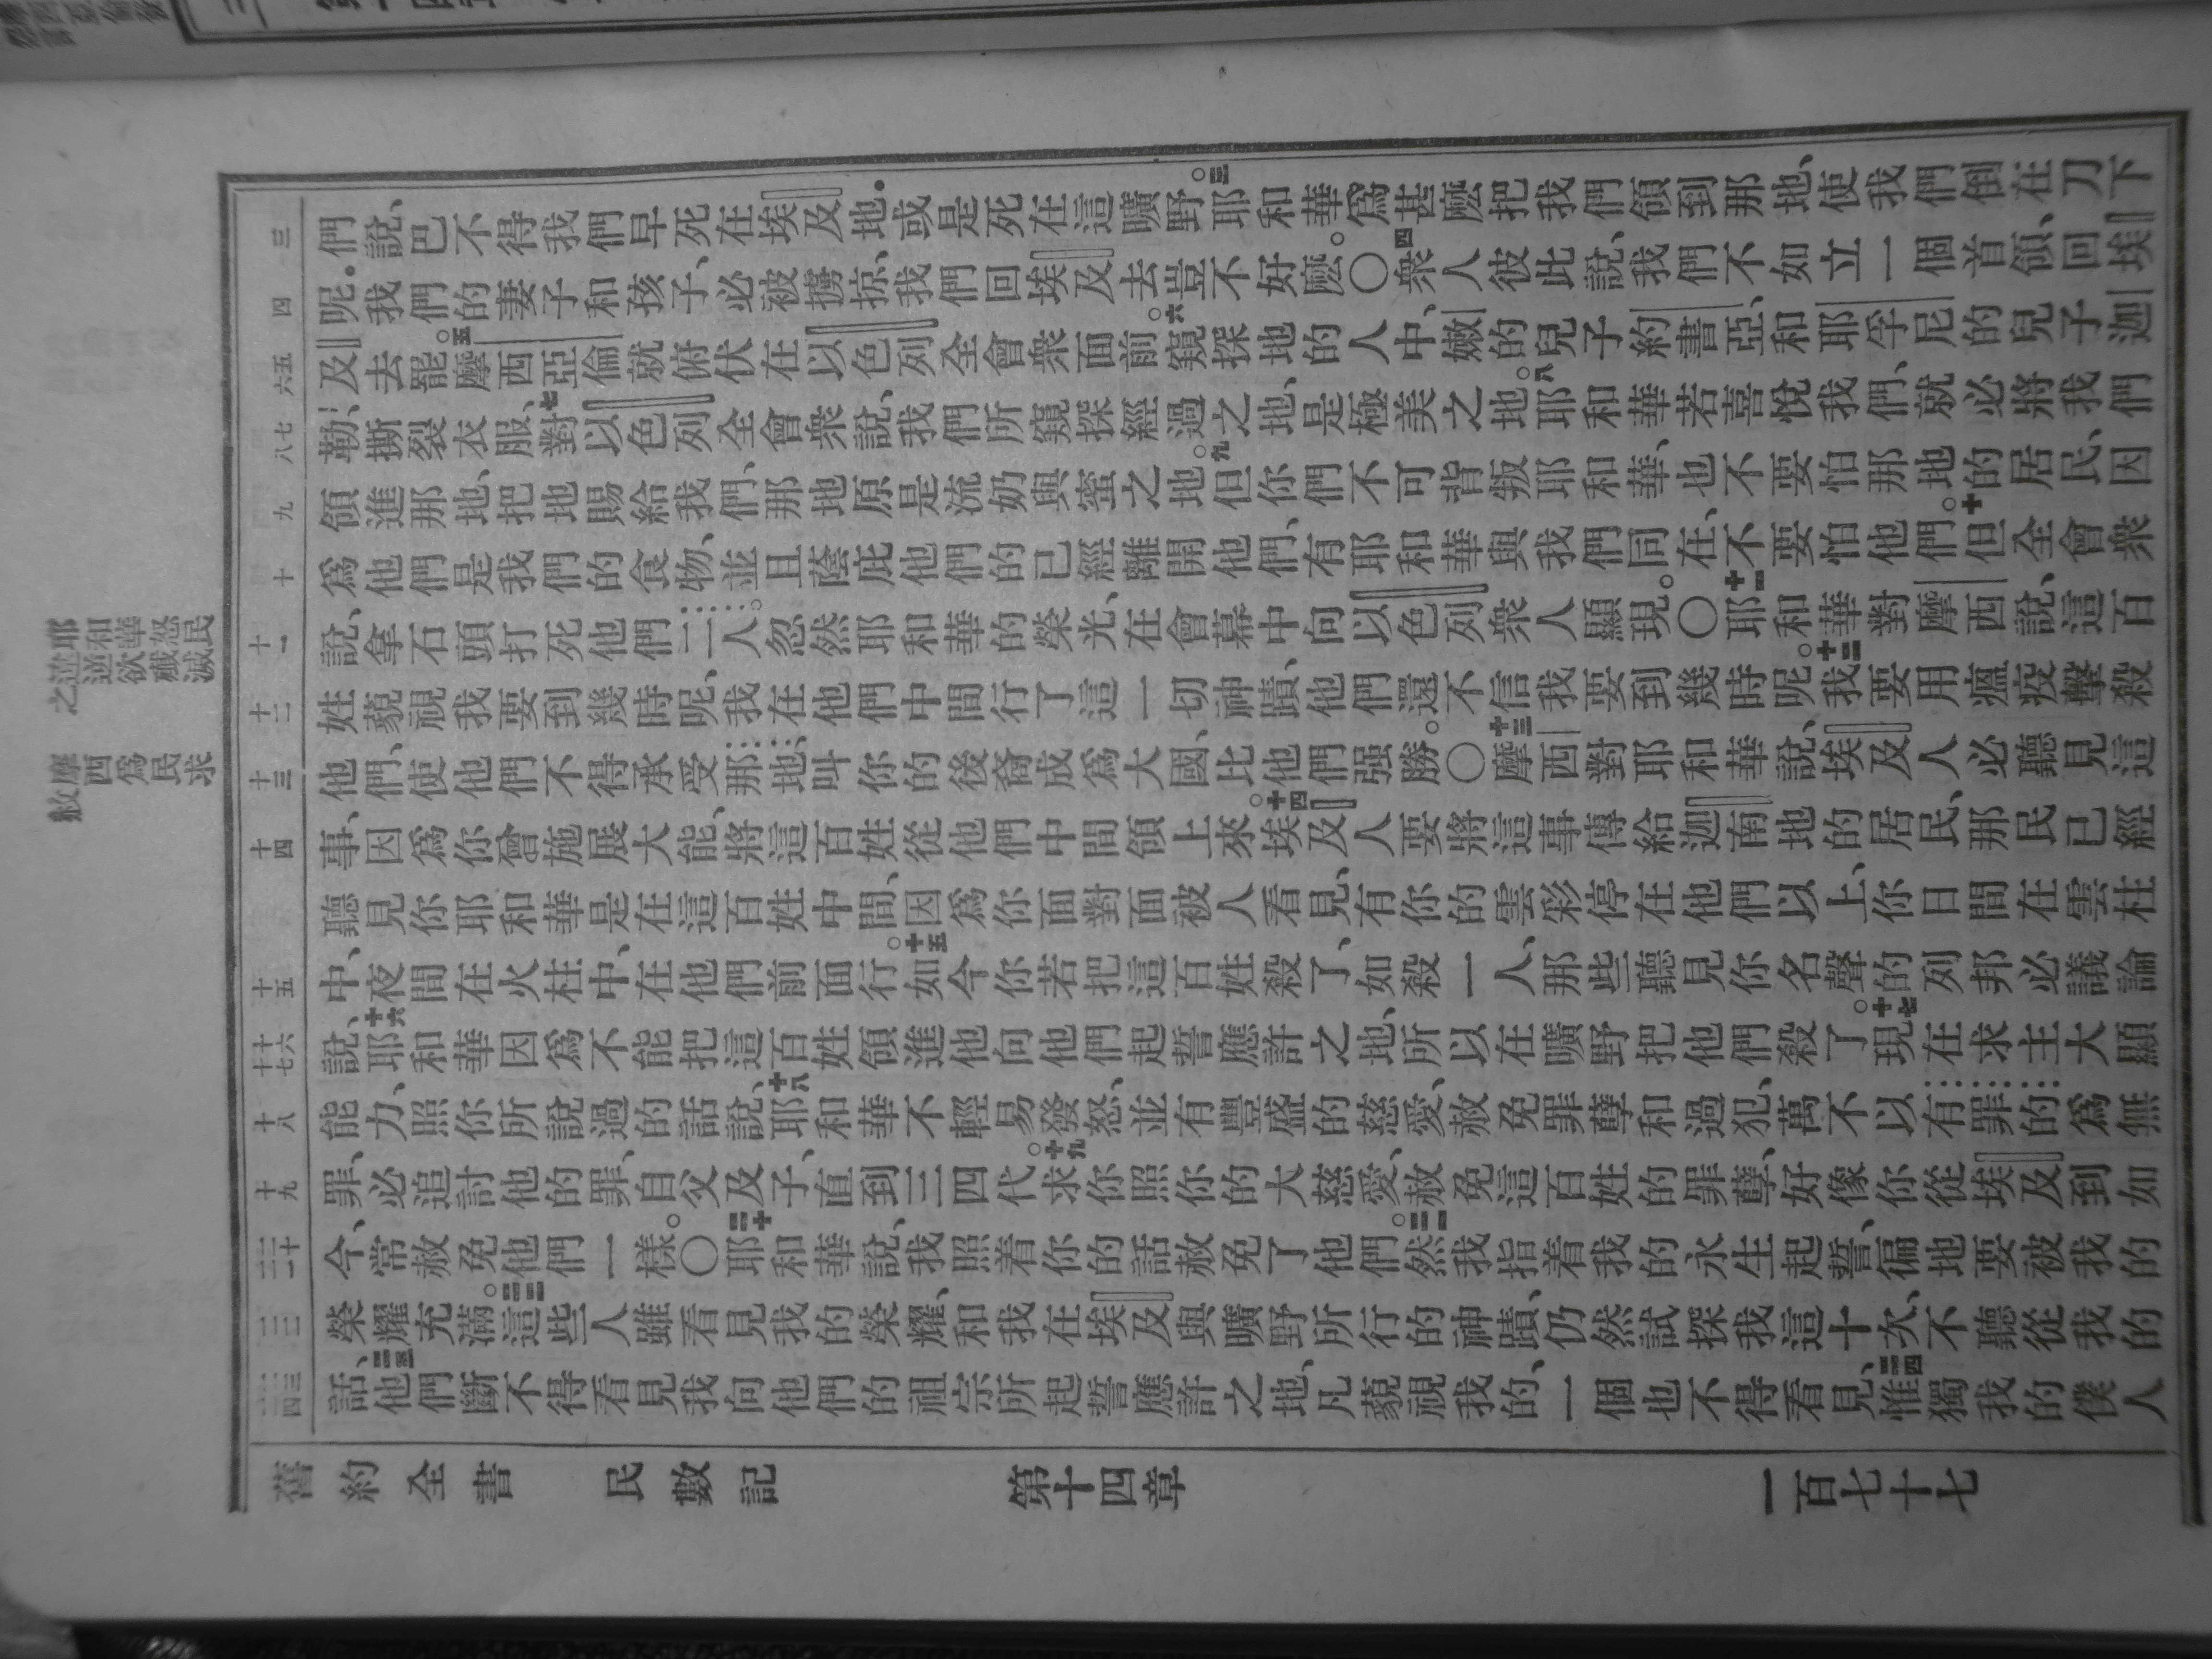 耶和華怒民
逆欲殲滅
之
摩西爲民求
赦
三
四
五
六
七
八
九
十
十一
十二
十三
十四
十五
十六
十七
十八
十九
二十
二一
二二
二三
二四
們說、巴不得我們早死在埃及地.或是死在這曠野。三耶和華爲甚麽把我們領到那地、使我們倒在刀下
呢.我們的妻子和孩子、必被擄掠、我們回埃及去豈不好麽。〇四衆人彼此說、我們不如立一個首領、回埃
及去罷。五摩西亞倫就俯伏在以色列全會衆面前。六窺探地的人中、嫩的兒子約書亞、和耶孚尼的兒子迦
勒、撕裂衣服、七對以色列全會衆說、我們所窺探經過之地、是極美之地。八耶和華若喜悅我們、就必將我們
領進那地、把地賜給我們、那地原是流奶與蜜之地。九但你們不可背叛耶和華、也不要怕那地的居民、因
爲他們是我們的食物、並且蔭庇他們的已經離開他們、有耶和華與我們同在、不要怕他們。十但全會衆
說、拿石頭打死他們二人。忽然耶和華的榮光、在會幕中向以色列衆人顯現。〇十一耶和華對摩西說、這百
姓藐視我要到幾時呢、我在他們中間行了這一切神蹟、他們還不信我要到幾時呢。十二我要用瘟疫擊殺
他們、使他們不得承受那地、叫你的後裔成爲大國、比他們强勝。〇十三摩西對耶和華說、埃及人必聽見這
事、因爲你曾施展大能、將這百姓從他們中間領上來。十四埃及人要將這事傳給迦南地的居民、那民已經
聽見你耶和華是在這百姓中間、因爲你面對面被人看見、有你的雲彩停在他們以上、你日間在雲柱
中、夜間在火柱中、在他們前面行。十五如今你若把這百姓殺了、如殺一人、那些聽見你名聲的列邦必議論
說、十六耶和華因爲不能把這百姓領進他向他們起誓應許之地、所以在曠野把他們殺了。十七現在求主大顯
能力、照你所說過的話說、十八耶和華不輕易發怒、並有豐盛的慈愛、赦免罪孽和過犯、萬不以有罪的爲無
罪、必追討他的罪、自父及子、直到三四代。十九求你照你的大慈愛、赦免這百姓的罪孽、好像你從埃及到如
今、常赦免他們一樣。〇二十耶和華說、我照着你的話赦免了他們。二一然我指着我的永生起誓、徧地要被我的
榮耀充滿。二二這些人雖看見我的榮耀、和我在埃及與曠野所行的神蹟、仍然試探我這十次、不聽從我的
話、二三他們斷不得看見我向他們的祖宗所起誓應許之地、凡藐視我的、一個也不得看見、二四惟獨我的僕人
舊約全書 民數記 第十四章 一百七十七